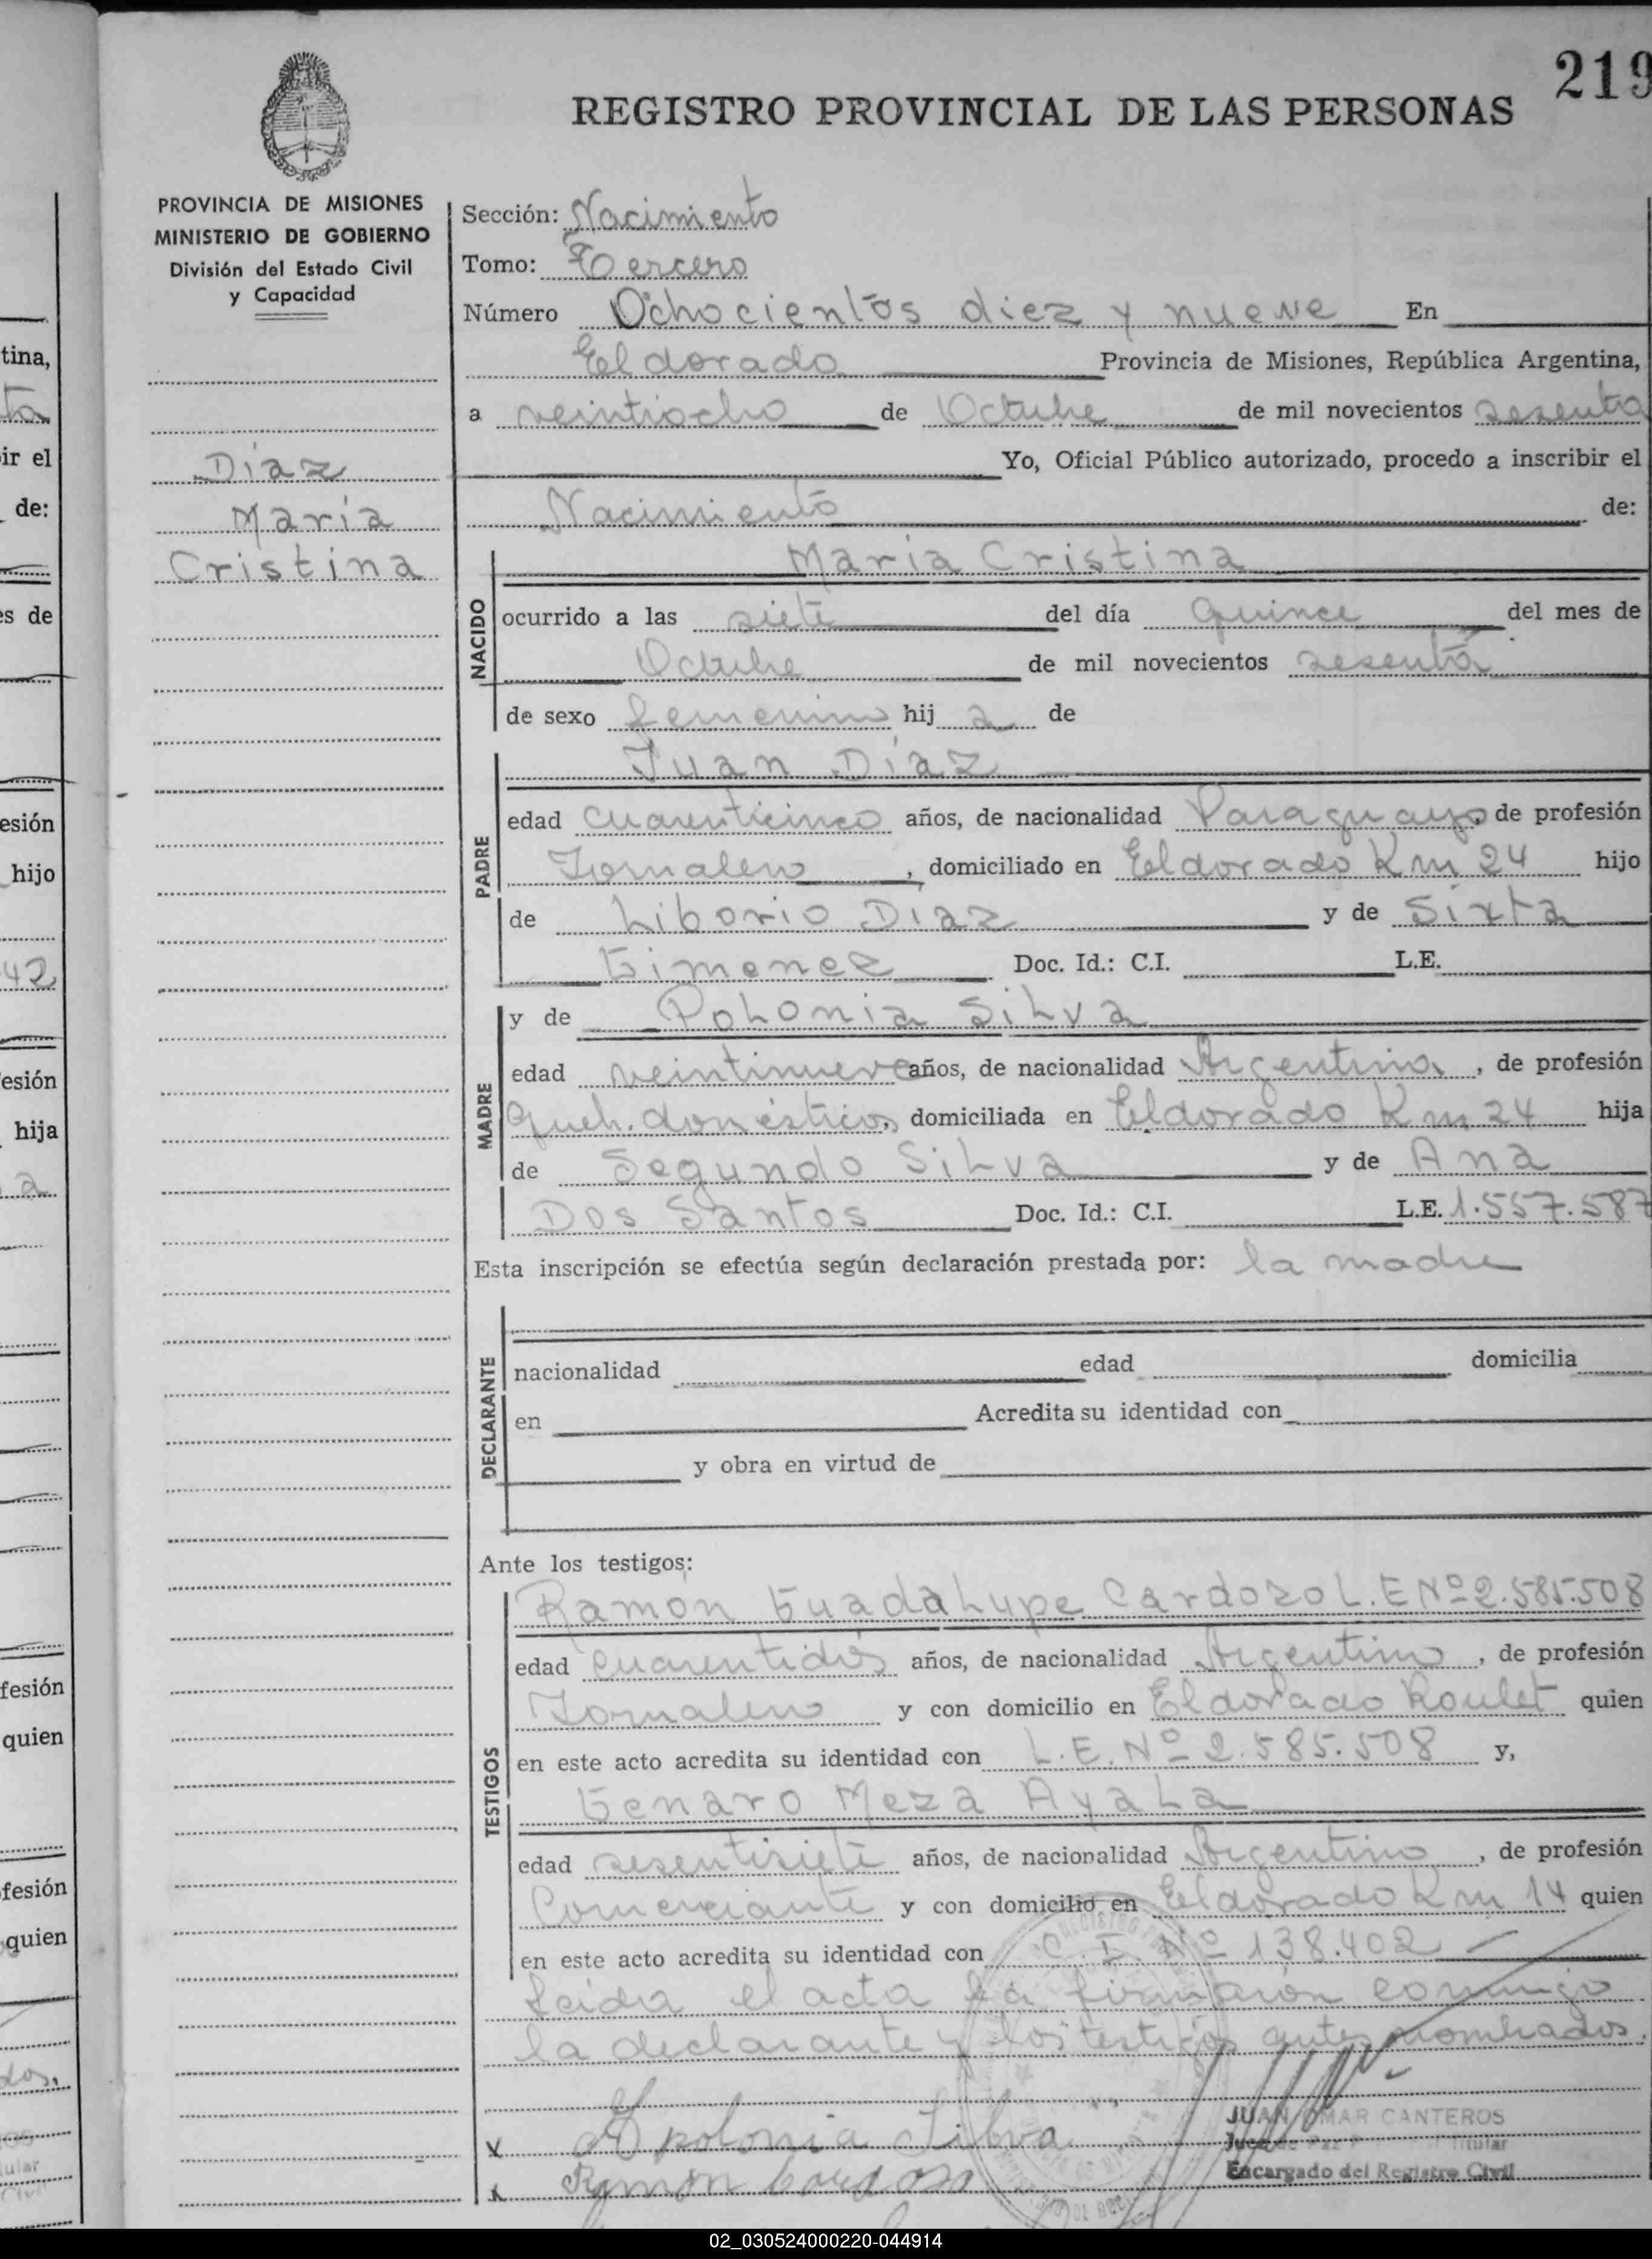 219
REGISTRO PROVINCIAL DE LAS PERSONAS
PROVINCIA DE MISIONES
MINISTERIO DE GOBIERNO
División del Estado Civil
y Capacidad
Díaz
María
Cristina
Sección: Nacimiento
Tomo: Tercero
Número Ochocientos diez y nueve En
Eldorado Provincia de Misiones, República Argentina,
a veintiocho de Octubre de mil novecientos sesenta
Yo, Oficial Público autorizado, procedo a inscribir el
Nacimiento de:
María Cristina
NACIDO
ocurrido a las siete del día quince del mes de
Octubre de mil novecientos sesenta
de sexo femenino hij a de
Juan Díaz
PADRE
edad cuarenticinco años, de nacionalidad Paraguayo, de profesión
Jornalero, domiciliado en Eldorado Km 24 hijo
de Liborio Díaz y de Sixta
Gimenez Doc. Id.: C.I. L.E.
MADRE
y de Polonia Silva
edad veintinueve años, de nacionalidad Argentina, de profesión
Queh. domésticos, domiciliada en Eldorado Km 24 hija
de Segundo Silva y de Ana
Dos Santos Doc. Id.: C.I. L.E. 1.557.587
Esta inscripción se efectúa según declaración prestada por: la madre
DECLARANTE
nacionalidad edad domicilia
en Acredita su identidad con
y obra en virtud de
Ante los testigos:
TESTIGOS
Ramón Guadalupe Cardozo L.E Nº 2.585.508
edad cuarentidós años, de nacionalidad Argentino, de profesión
Jornalero y con domicilio en Eldorado Roulet quien
en este acto acredita su identidad con L.E. Nº 2.585.508 y,
Genaro Meza Ayala
edad sesentisiete años, de nacionalidad Argentino, de profesión
Comerciante y con domicilio en Eldorado Km 14 quien
en este acto acredita su identidad con C.I. Nº 138.402
Leída el acta la firmaron conmigo
la declarante y los testigos antes nombrados.
x Apolonia Silva
x Ramon Cardozo
JUAN OMAR CANTEROS
Juez de Paz Titular
Encargado del Registro Civil
02_030524000220-044914